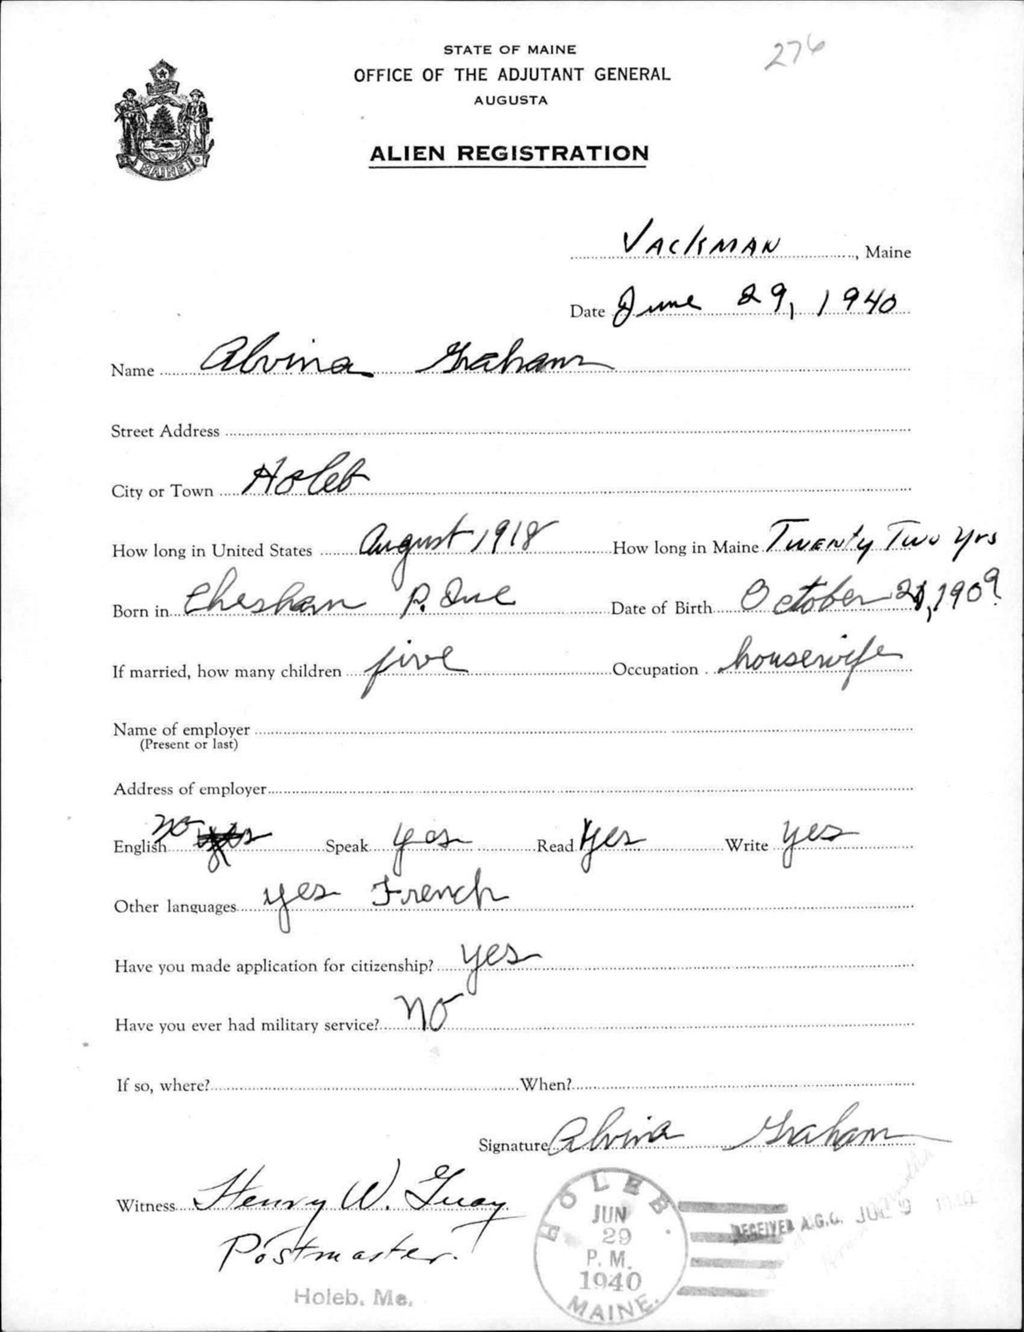 STATE OF MAINE
OFFICE OF THE ADJUTANT GENERAL
AUGUSTA
276
ALIEN REGISTRATION
MAINE
Jackman, Maine
Date June 29, 1940
Name Alvina Graham
Street Address
City or Town Holeb
How long in United States August 1918 How long in Maine Twenty Two yrs
Born in Chesham P. Que Date of Birth October 21, 1909
If married, how many children five Occupation housewife
Name of employer
(Present or last)
Address of employer
English no yes Speak yes Read yes Write yes
Other languages yes French
Have you made application for citizenship? yes
Have you ever had military service? no
If so, where? When?
Signature Alvina Graham
Witness Henry W. Guay
Postmaster.
Holeb, Me.
HOLEB.
JUN
29
P.M.
1940
MAINE.
RECEIVED A.G.O.